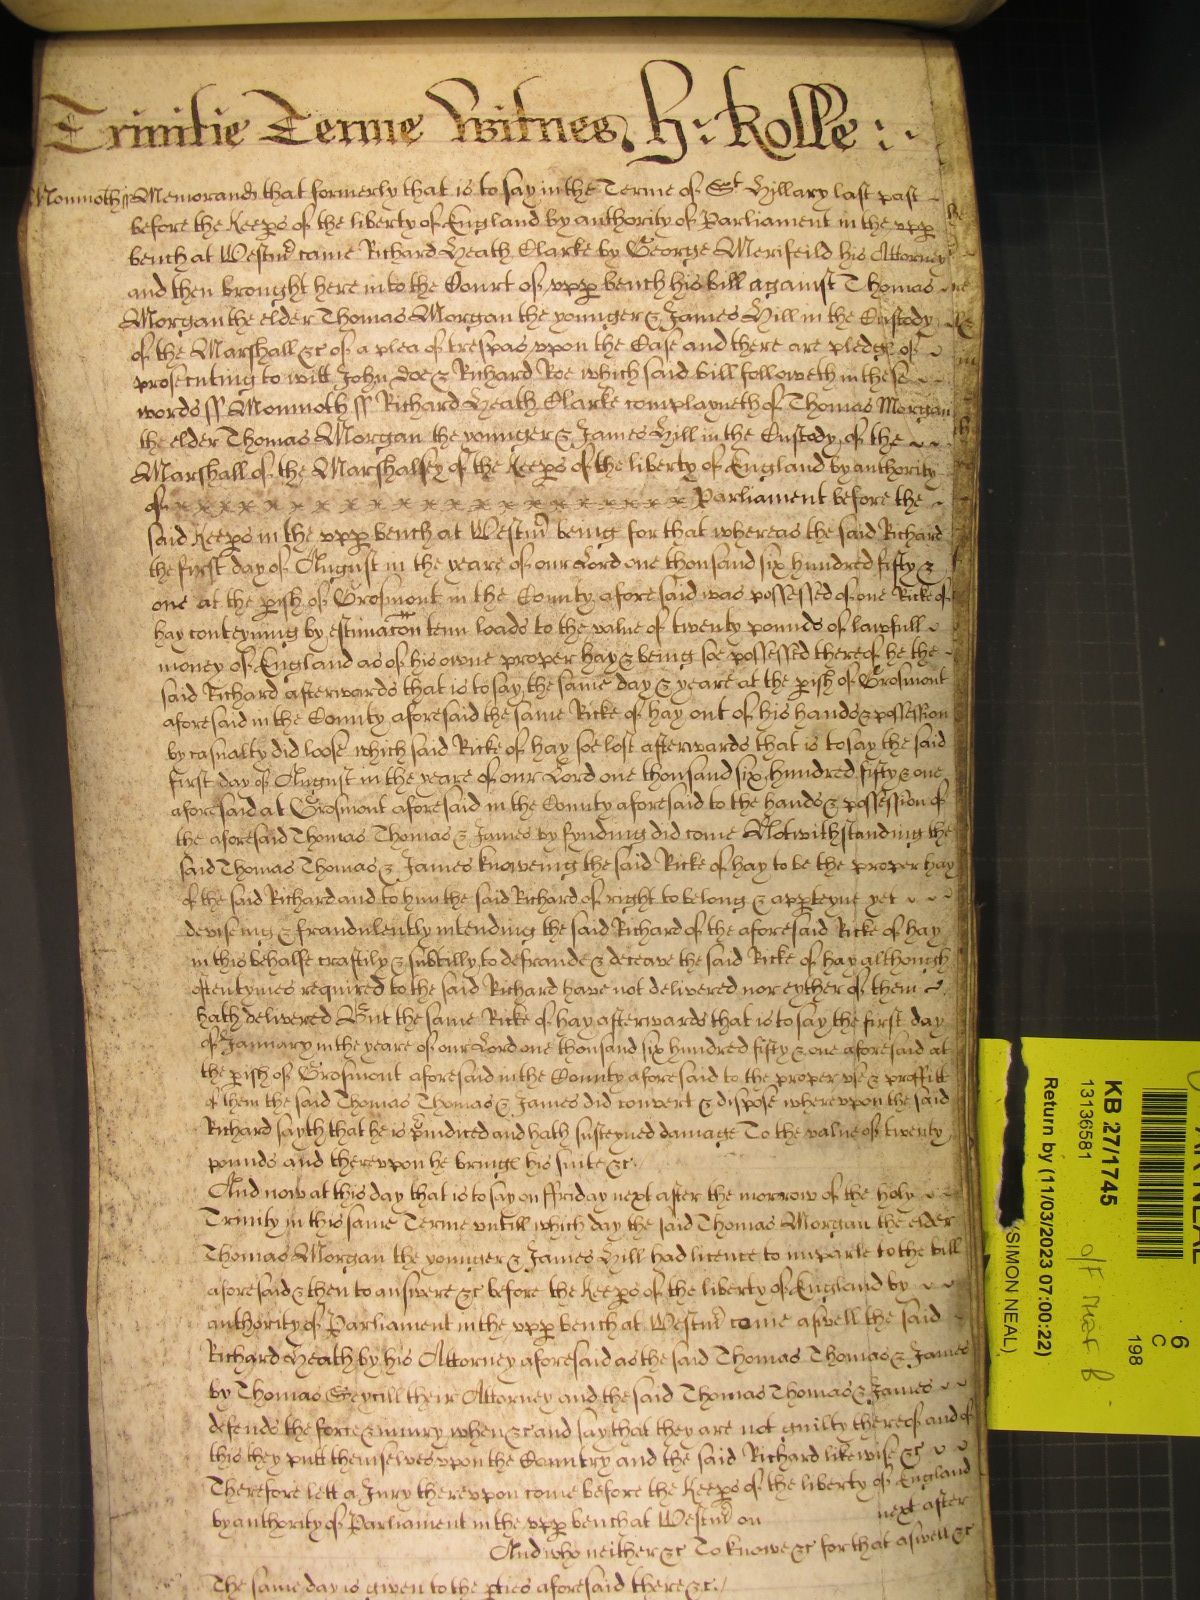 Trinitie Terme Witnes H: Rolle :
Monmoth ss Memorand that formerly that is to say in the Terme of St Hillary last past
before the Keeps of the liberty of England by authority of Parliament in the upp
bench at Westm came Richard Heath Clarke by George Merifeild his Attorney
and then brought here into the Court of upp bench his bill against Thomas
Morgan the elder Thomas Morgan the younger & James Hill in the Custody
of the Marshall &c of a plea of trespas upon the Case and there are pledg of
prosecuting to witt John Doe & Richard Roe which said bill followeth in these
words ss Monmoth ss Richard Heath Clarke complayneth of Thomas Morgan
the elder Thomas Morgan the younger & James Hill in the Custody of the
Marshall of the Marshalsey of the Keeps of the liberty of England by authority
of x x x x x x x x x x x x x x x x x x Parliament before the
said Keeps in the upp bench at Westm being for that whereas the said Richard
the first day of August in the yeare of our Lord one thousand six hundred fifty &
one at the pish of Grosmont in the County aforesaid was possessed of one Ricke of
hay conteyning by estimacon tenn loads to the value of twenty pounds of lawfull
money of England as of his owne proper hay & being soe possessed thereof he the
said Richard afterwards that is to say the same day & yeare at the pish of Grosmont
aforesaid in the County aforesaid the same Ricke of hay out of his hands & possession
by casualty did loose which said Ricke of hay soe lost afterwards that is to say the said
first day of August in the yeare of our Lord one thousand six hundred fifty & one
aforesaid at Grosmont aforesaid in the County aforesaid to the hands & possession of
the aforesaid Thomas Thomas & James by fynding did come Notwithstanding the
said Thomas Thomas & James knoweing the said Ricke of hay to be the proper hay
of the said Richard and to him the said Richard of right to belong & apperteyne yet
deviseing & fraudulently intending the said Richard of the aforesaid Ricke of hay
in this behalfe craftily & subtilly to defraude & deceave the said Ricke of hay although
oftentymes required to the said Richard have not delivered nor eyther of them
hath delivered But the same Ricke of hay afterwards that is to say the first day
of January in the yeare of our Lord one thousand six hundred fifty & one aforesaid at
the pish of Grosmont aforesaid in the County aforesaid to the proper use & proffitt
of them the said Thomas Thomas & James did convert & dispose whereupon the said
Richard sayth that he is pjudiced and hath susteyned damage To the value of twenty
pounds and thereupon he bringe his suite &c.
And now at this day that is to say on ffriday next after the morrow of the holy
Trinity in this same Terme untill which day the said Thomas Morgan the elder
Thomas Morgan the younger & James Hill had licence to imparle to the bill
aforesaid & then to answere &c before the Keeps of the liberty of England by
authority of Parliament in the upp bench at Westm come aswell the said
Richard Heath by his Attorney aforesaid as the said Thomas Thomas & James
by Thomas their Attorney and the said Thomas Thomas & James
defends the force & injury when &c and say that they are not guilty thereof and of
this they putt themselves upon the Country and the said Richard likewise &c
Therefore lett a Jury thereupon come before the Keeps of the liberty of England
by authority of Parliament in the upp bench at Westm on next after
And who neither &c To knowe &c for that aswell &c
The same day is given to the pties aforesaid there &c.
KB 27/1745
13136581
Return by (11/03/2023 07:00:22)
(SIMON NEAL)
6
C
198